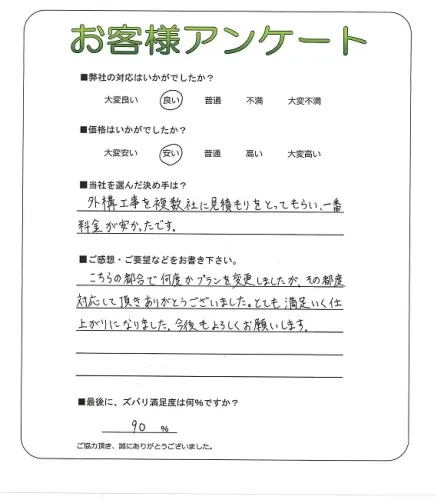 お客様アンケート
■弊社の対応はいかがでしたか？
大変良い　良い　普通　不満　大変不満
■価格はいかがでしたか？
大変安い　安い　普通　高い　大変高い
■当社を選んだ決め手は？
外構工事を複数社に見積もりをとってもらい、一番
料金が安かったです。
■ご感想・ご要望などをお書き下さい。
こちらの都合で何度かプランを変更しましたが、その都度
対応して頂きありがとうございました。とても満足いく仕
上がりになりました。今後もよろしくお願いします。
■最後に、ズバリ満足度は何％ですか？
90 ％
ご協力頂き、誠にありがとうございました。